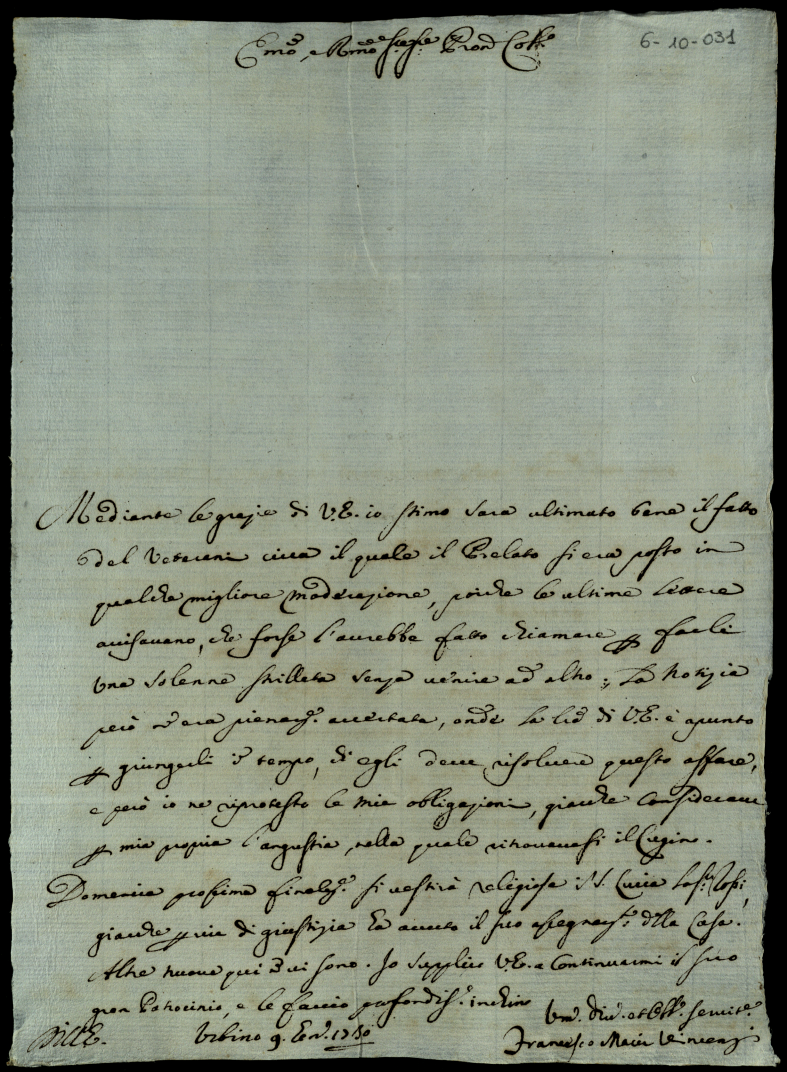 6-10-031
Emo, e Rmo Sig.re Pron Coll.mo
Mediante le grazie di V.E. io stimo sara ultimato bene il fatto
del Veterani circa il quale il Prelato si era posto in
qualche migliore moderazione, poiche le ultime lettere
avisavano, che forse l'avrebbe fatto chiamare p farli
una solenne strilleta senza venire ad altro; La Notizia
però nō era pienam.te accertata, onde la di V.E. è apunto
p giungerli in tempo, ch egli deve risolvere questo affare,
e però io ne riprotesto le mie obligazioni, giache Consideravo
p mia propria l'angustia, nella quale ritrovavasi il Cugino.
Domenica prossima finalm.te si vestirà religiosa in S. Lucia
giache p via di giustizia ha avuto il suo assegnam.to della Casa.
Altre nuove qui nō vi sono. Io supplico V.E. a Continuarmi il suo
gran Patrocinio, e le faccio profondiss.o inchino
Urbino 9. Gen.o 1730
Um. Div. et Obb. Servit.e
Francesco Maria Vincenzi